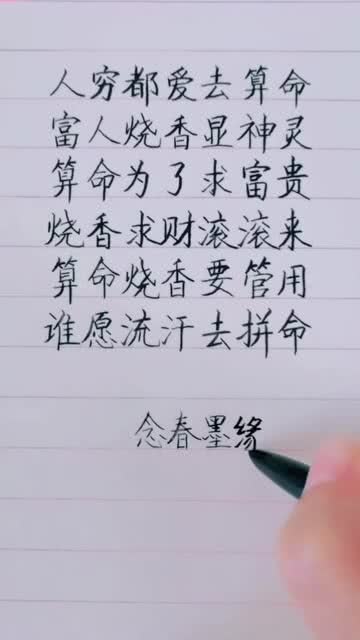 人穷都爱去算命
富人烧香显神灵
算命为了求富贵
烧香求财滚滚来
算命烧香要管用
谁愿流汗去拼命
念春墨缘